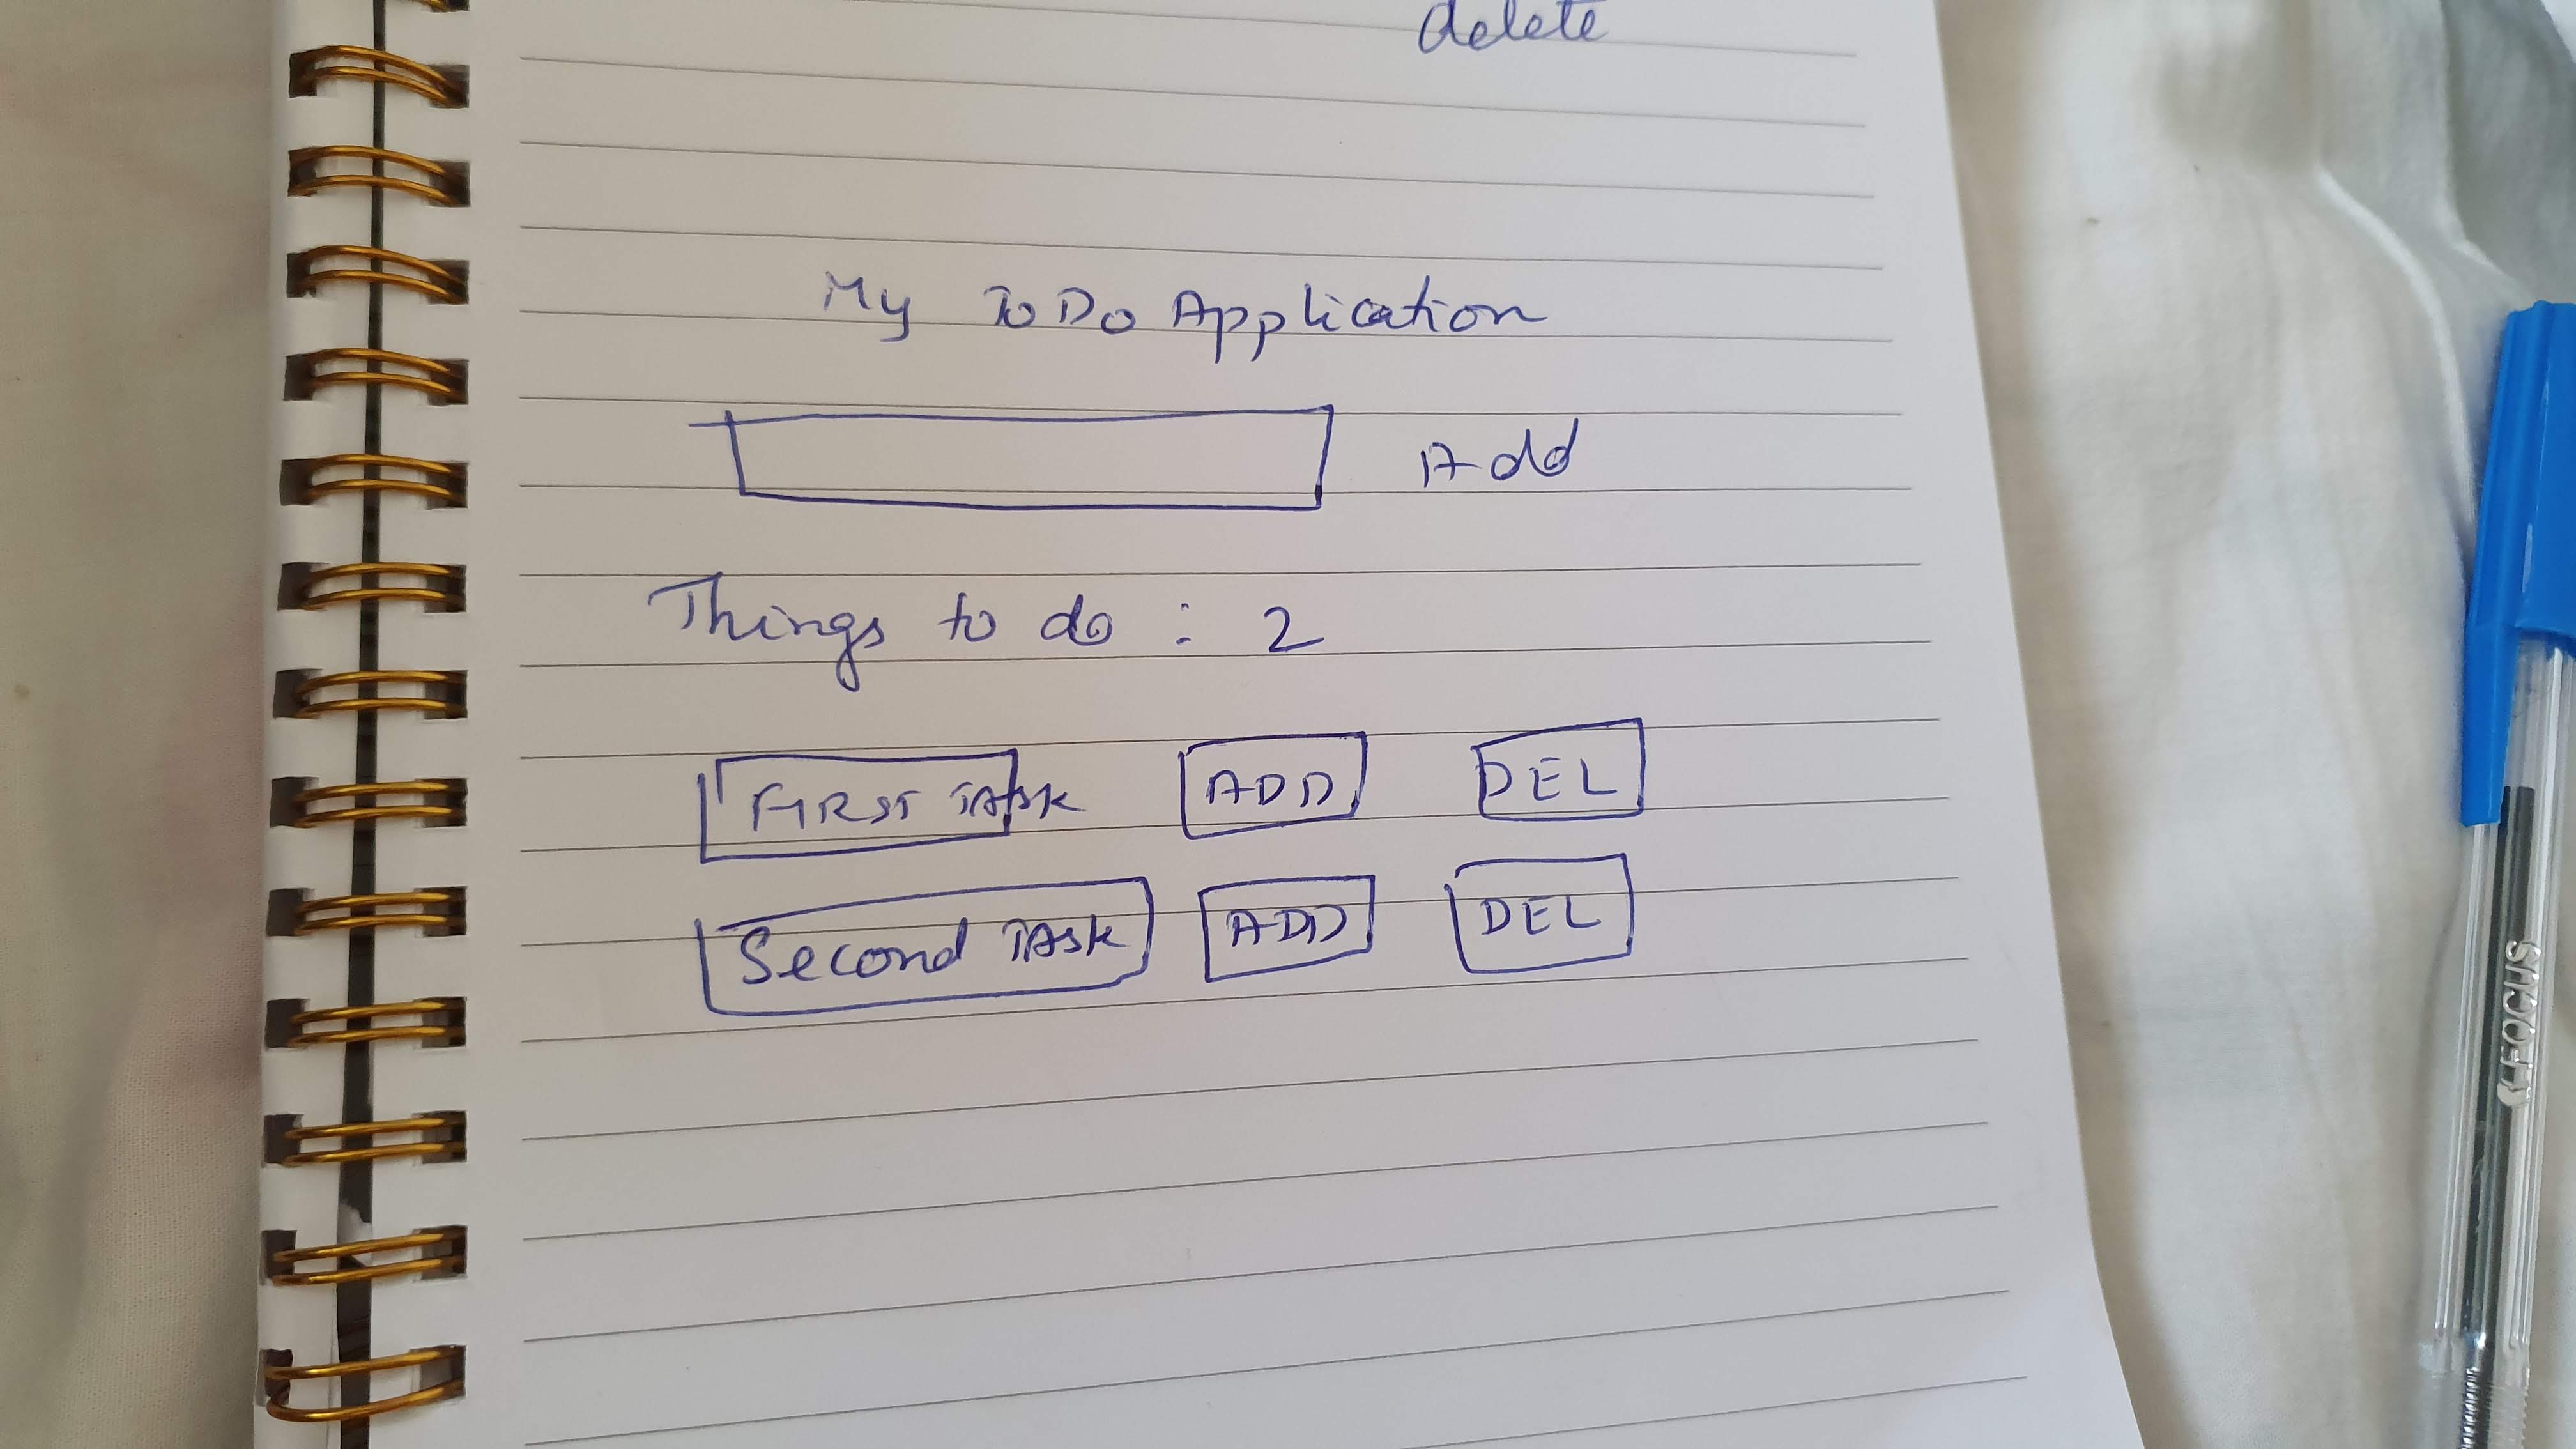 delete
My To Do Application
Add
Things to do : 2
FIRST TASK ADD DEL
Second TASK ADD DEL
FOCUS